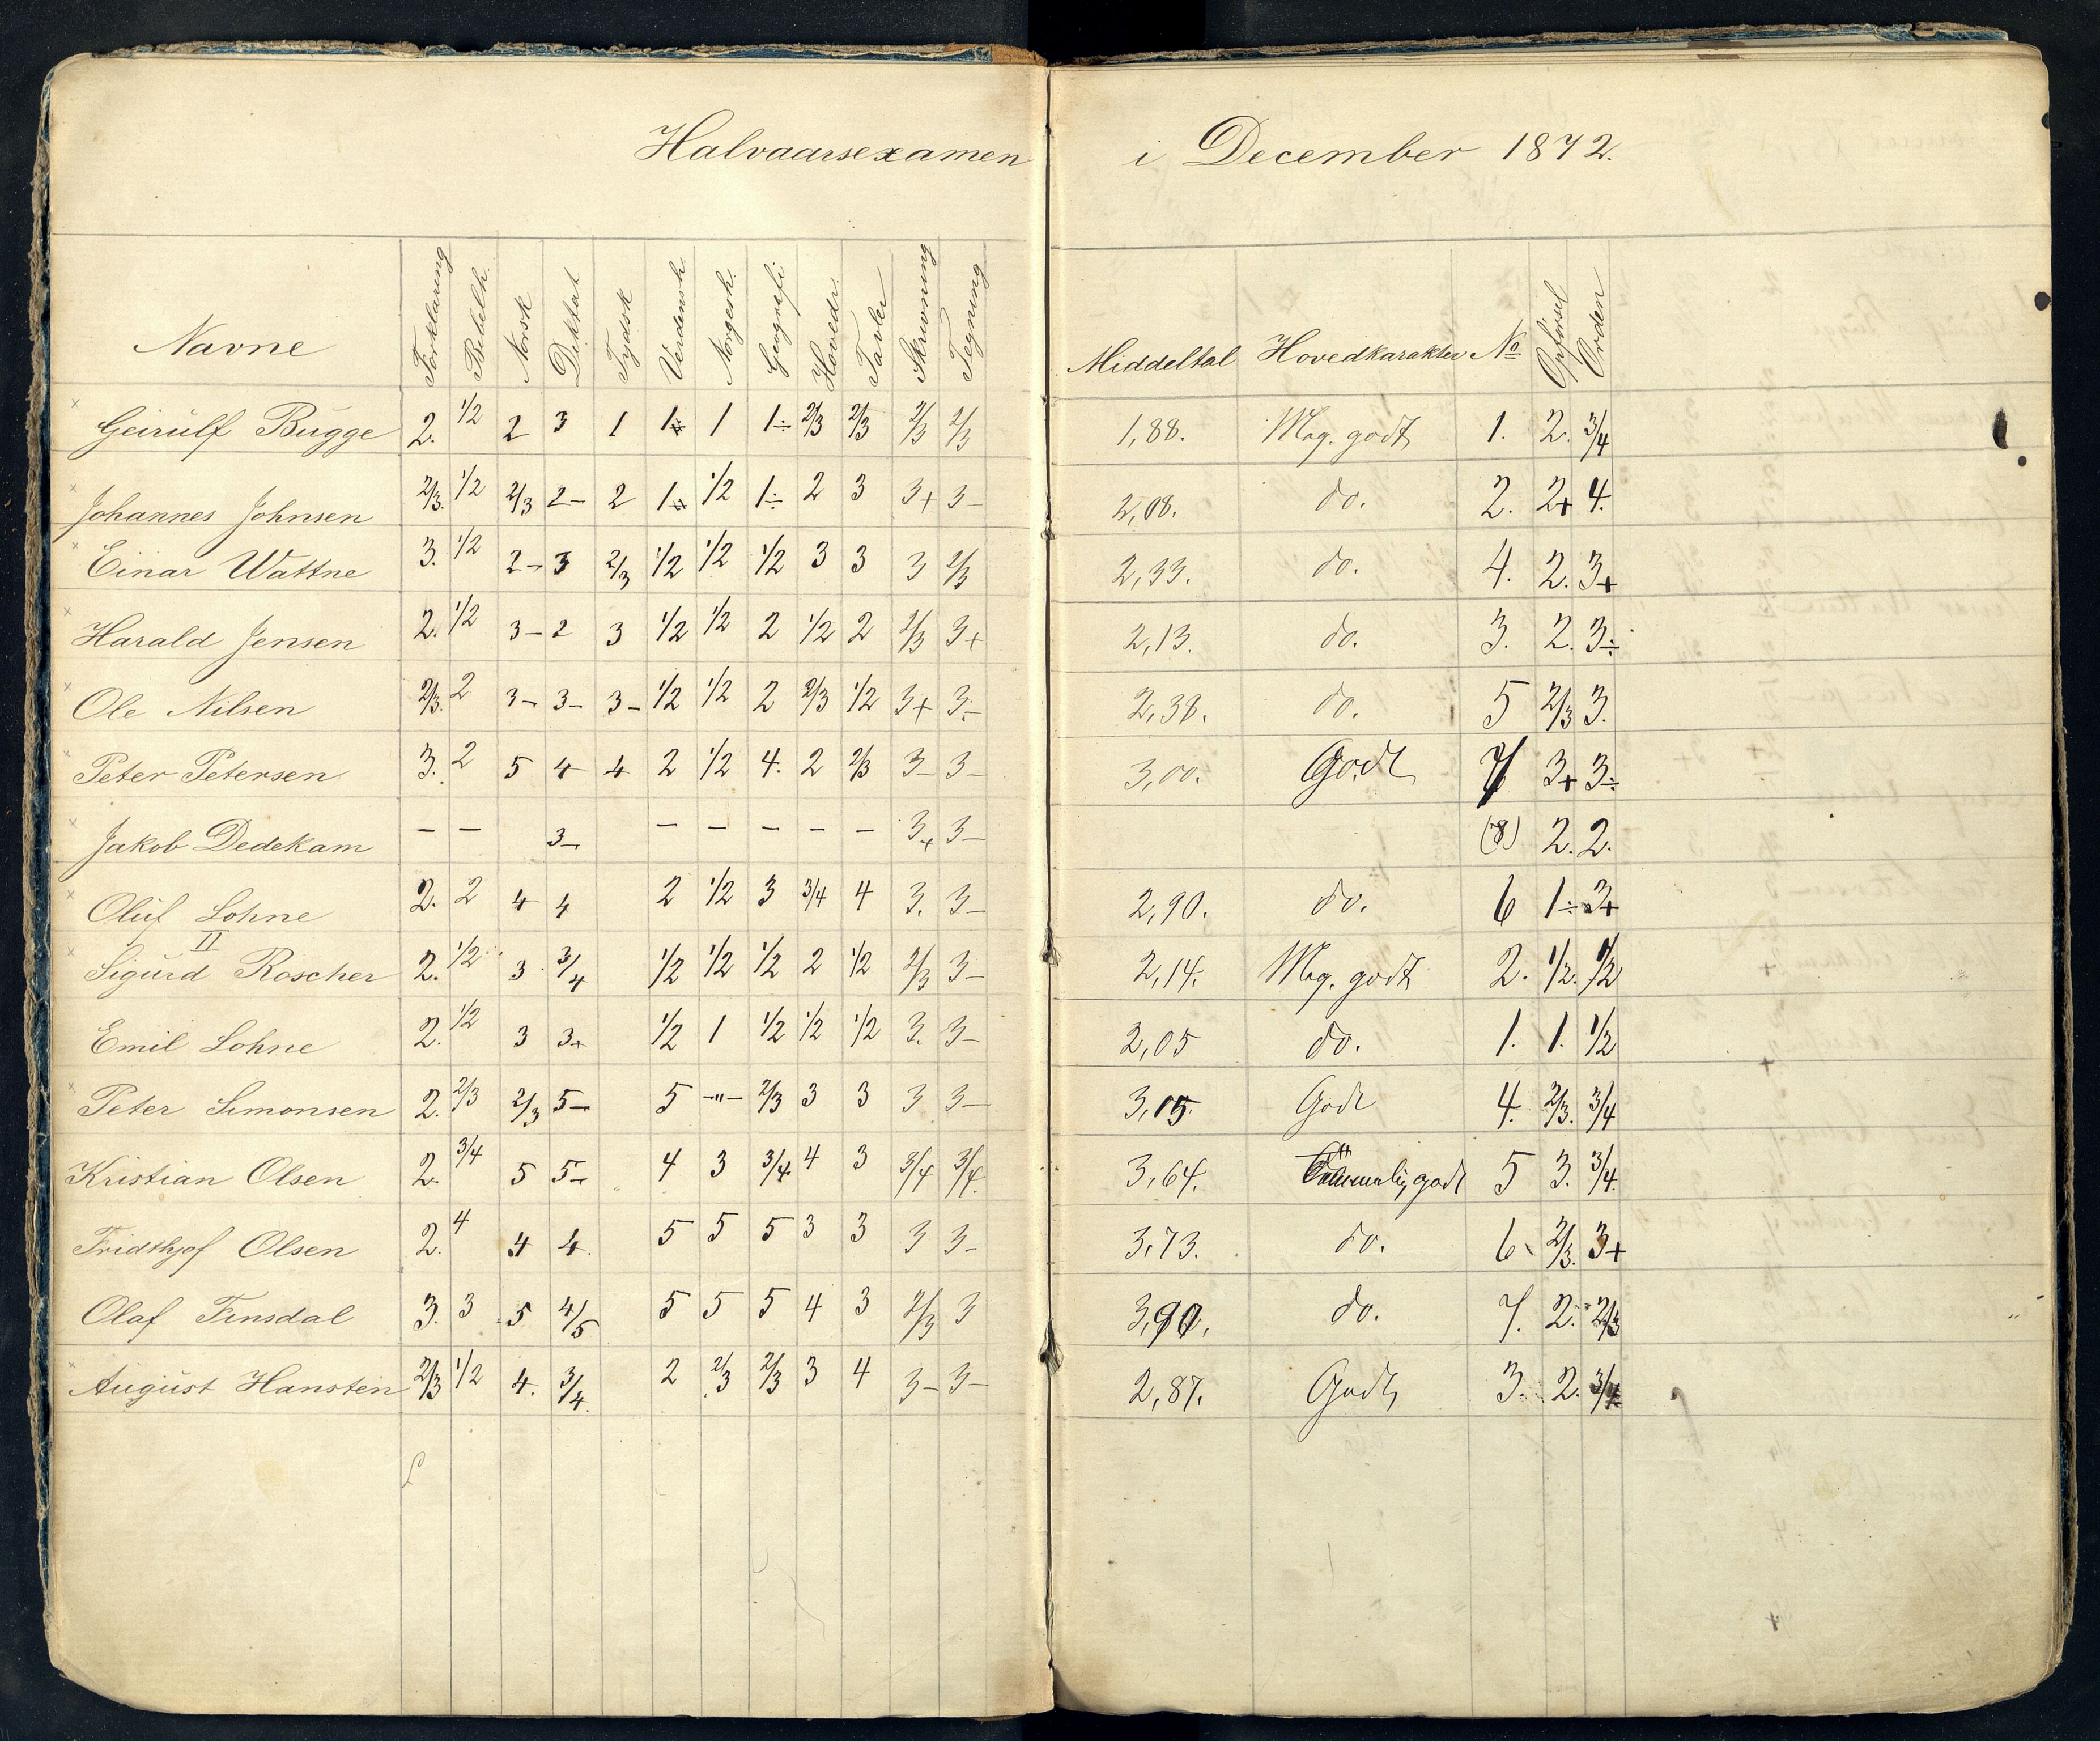 Halvaarsexamen i December 1872.
Navne Forklaring Bibelh. Norsk Diktat Tydsk Verdensh. Norgesh. Geografi Hovedr. Tavler Skrivning Tegning Middeltal Hovedkarakter No Opförsel Orden
Geirulf Bugge 2. 1/2 2 3 1 1÷ 1 1÷ 2/3 2/3 2/3 2/3 1,88. Meg. godt 1. 2. 3/4
Johannes Johnsen 2/3. 1/2 2/3 2- 2 1÷ 1/2 1÷ 2 3 3+ 3- 2,08. do. 2. 2+ 4.
Einar Wattne 3. 1/2 2- 3 2/3 1/2 1/2 1/2 3 3 3 2/3 2,33. do. 4. 2. 3+
Harald Jensen 2. 1/2 3- 2 3 1/2 1/2 2 1/2 2 2/3 3+ 2,13. do. 3. 2. 3÷
Ole Nilsen 2/3. 2 3- 3- 3- 1/2 1/2 2 2/3 1/2 3+ 3÷ 2,38. do. 5 2/3 3.
Peter Petersen 3. 2 5 4 4 2 1/2 4. 2 2/3 3- 3- 3,00. Godt 7 3+ 3÷
Jakob Dedekam - - 3- - - - - - 3+ 3- (8) 2. 2.
Oluf Lohne 2. 2 4 4 2 1/2 3 3/4 4 3. 3- 2,90. do. 6 1÷ 3+
II
Sigurd Roscher 2. 1/2 3 3/4 1/2 1/2 1/2 2 1/2 2/3 3- 2,14. Meg. godt 2. 1/2. 1/2
Emil Lohne 2. 1/2 3 3+ 1/2 1 1/2 1/2 1/2 3. 3- 2,05 do. 1. 1. 1/2
Peter Simonsen 2. 2/3 2/3 5- 5 -"- 2/3 3 3 3 3- 3,05 Godt 4. 2/3. 3/4
Kristian Olsen 2. 3/4 5 5- 4 3 3/4 4 3 3/4 3/4. 3,64. Temmelig godt 5 3. 3/4.
Fridthjof Olsen 2. 4 4 4. 5 5 5 3 3 3 3- 3,73. do. 6. 2/3. 3+
Olaf Finsdal 3. 3 5 4/5 5 5 5 4 3 2/3 3 3,90. do. 7. 2. 2/3
August Hansten 2/3 1/2 4. 3/4. 2 2/3 2/3 3 4 3- 3- 2,87. Godt 3. 2. 3/4